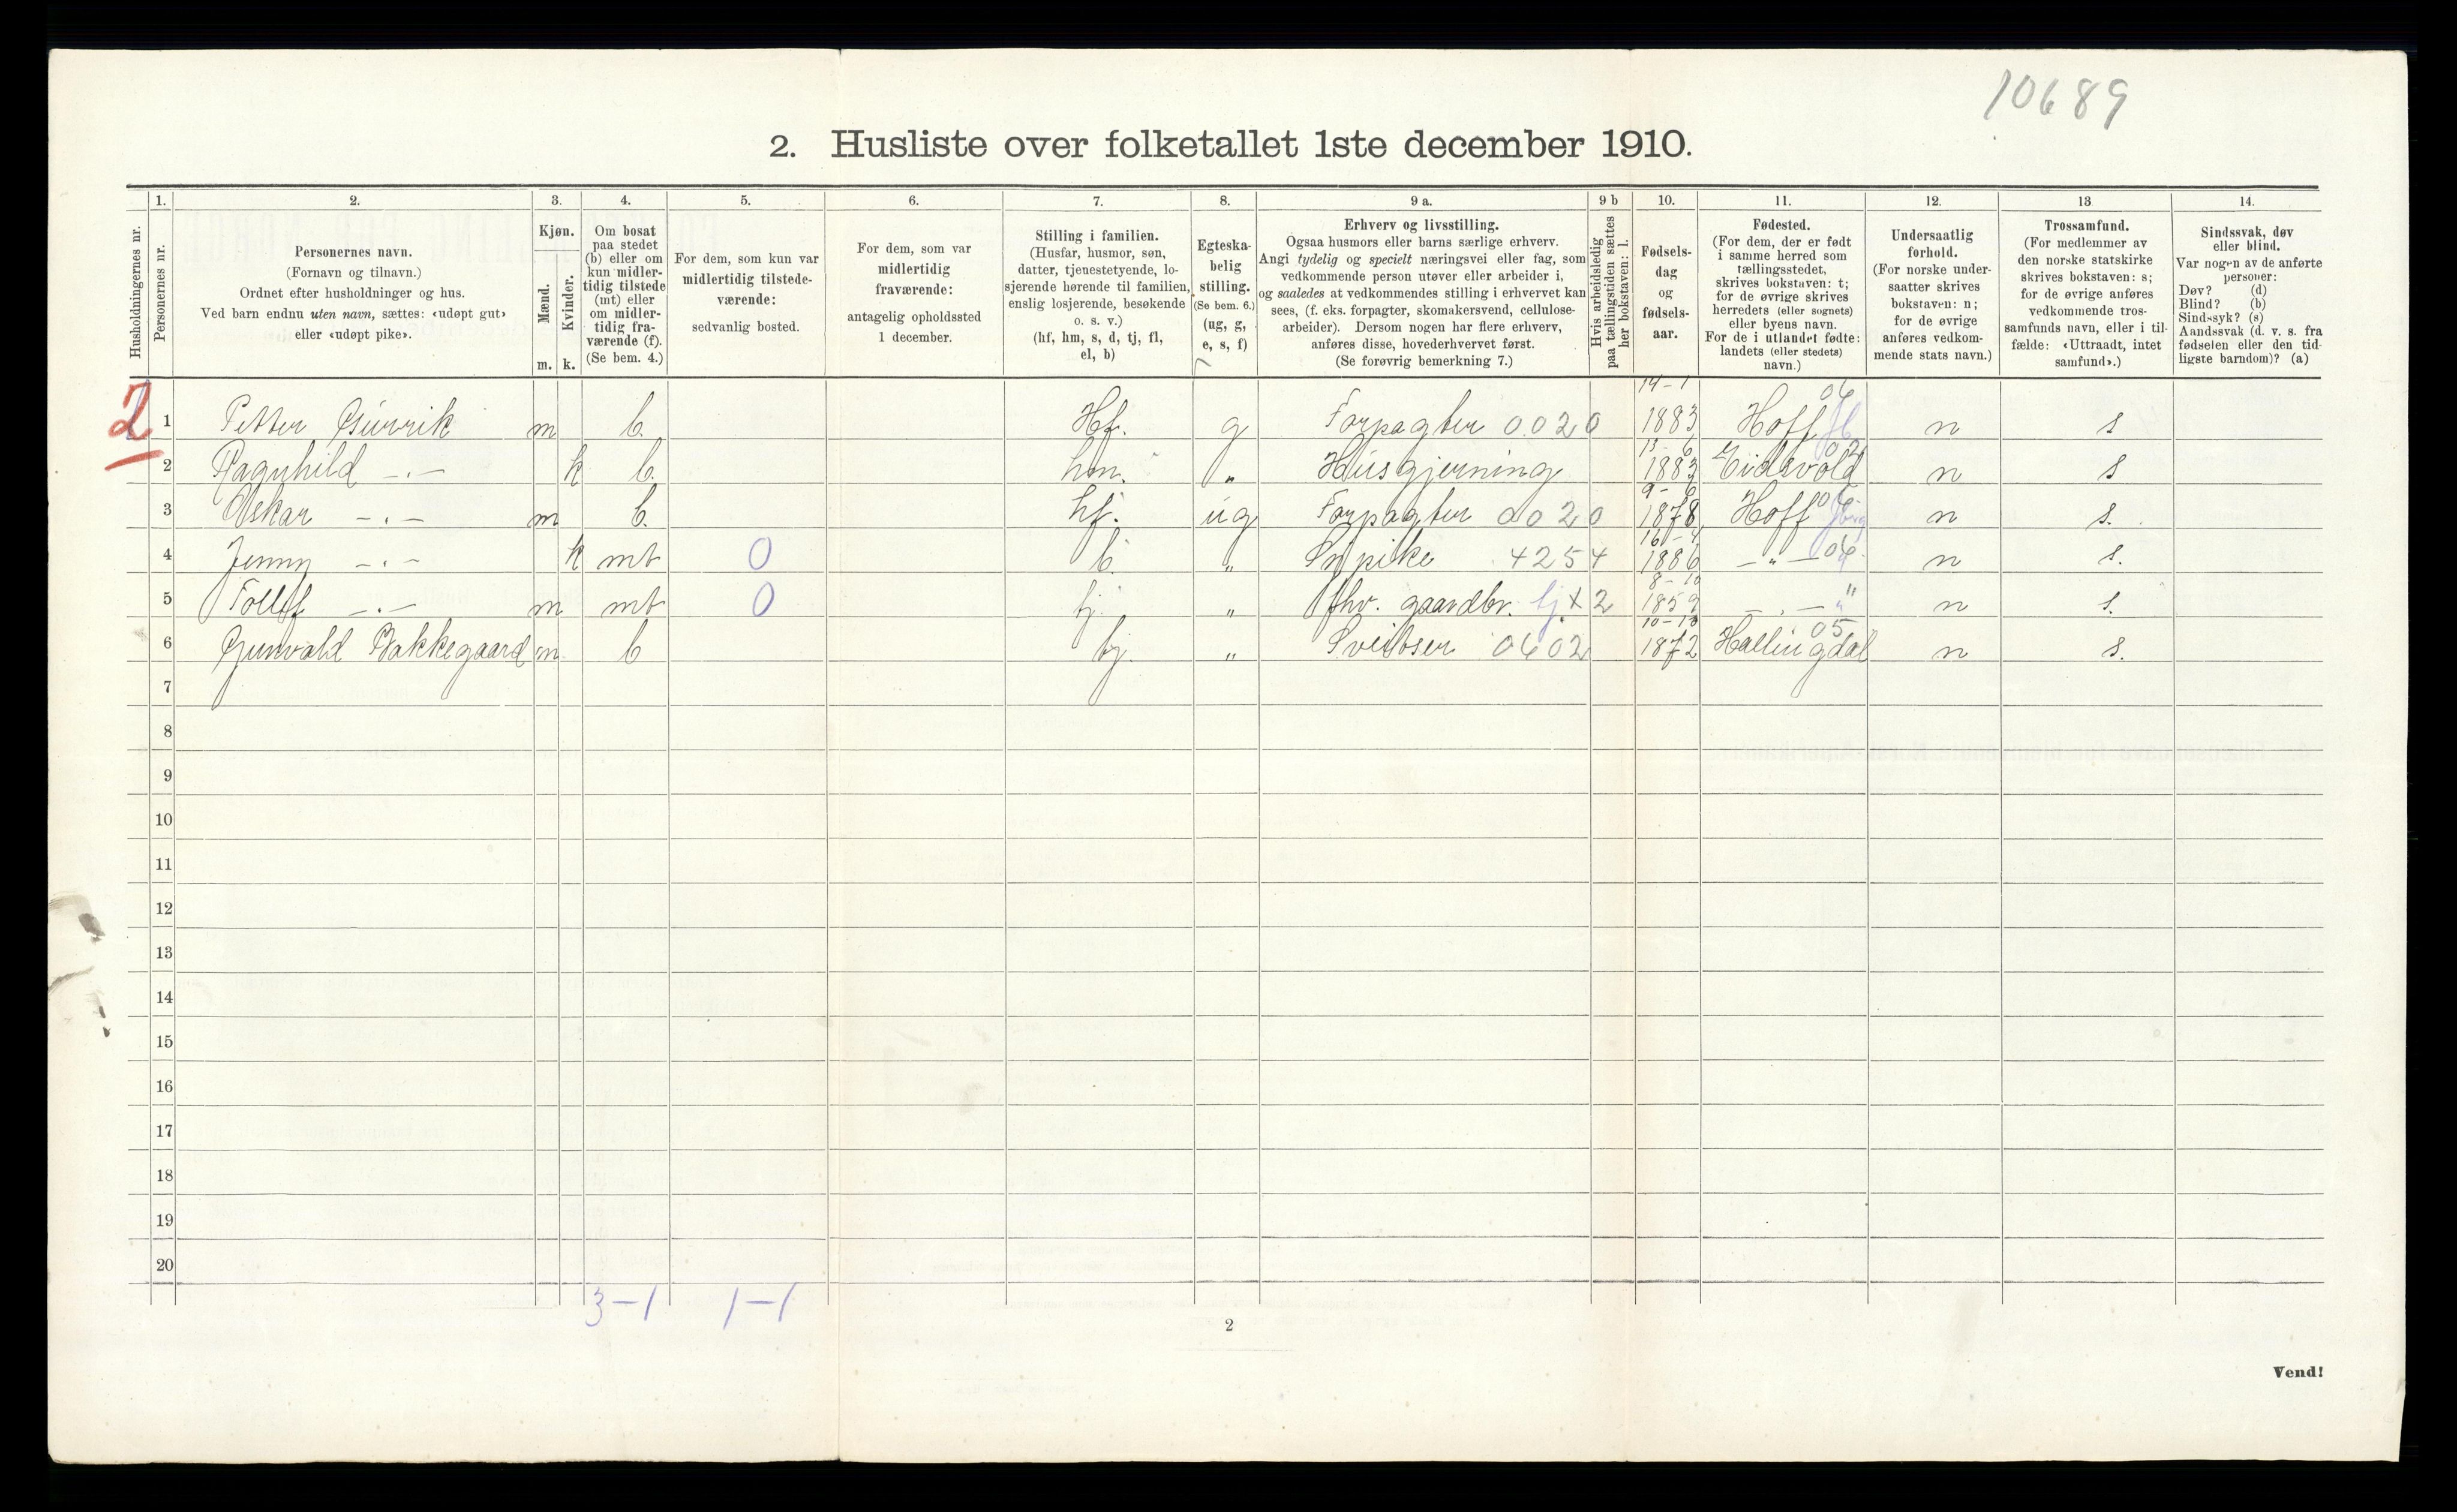 10689
2. Husliste over folketallet 1ste december 1910.
1. 2. 3. 4. 5. 6. 7. 8. 9 a. 9 b 10. 11. 12. 13 14.
Husholdningernes nr.
Personernes nr.
Personernes navn.
(Fornavn og tilnavn.)
Ordnet efter husholdninger og hus.
Ved barn endnu uten navn, sættes: «udøpt gut»
eller «udøpt pike».
Kjøn.
Mænd.
Kvinder.
m. k.
Om bosat
paa stedet
(b) eller om
kun midler-
tidig tilstede
(mt) eller
om midler-
tidig fra-
værende (f).
(Se bem. 4.)
For dem, som kun var
midlertidig tilstede-
værende:
sedvanlig bosted.
For dem, som var
midlertidig
fraværende:
antagelig opholdssted
1 december.
Stilling i familien.
(Husfar, husmor, søn,
datter, tjenestetyende, lo-
sjerende hørende til familien,
enslig losjerende, besøkende
o. s. v.)
(hf, hm, s, d, tj, fl,
el, b)
Egteska-
belig
stilling.
(Se bem. 6.)
(ug, g,
e, s, f)
Erhverv og livsstilling.
Ogsaa husmors eller barns særlige erhverv.
Angi tydelig og specielt næringsvei eller fag, som
vedkommende person utøver eller arbeider i,
og saaledes at vedkommendes stilling i erhvervet kan
sees, (f. eks. forpagter, skomakersvend, cellulose-
arbeider). Dersom nogen har flere erhverv,
anføres disse, hovederhvervet først.
(Se forøvrig bemerkning 7.)
Hvis arbeidsledig
paa tællingstiden sættes
her bokstaven: l.
Fødsels-
dag
og
fødsels-
aar.
Fødested.
(For dem, der er født
i samme herred som
tællingsstedet,
skrives bokstaven: t;
for de øvrige skrives
herredets (eller sognets)
eller byens navn.
For de i utlandet fødte:
landets (eller stedets)
navn.)
Undersaatlig
forhold.
(For norske under-
saatter skrives
bokstaven: n;
for de øvrige
anføres vedkom-
mende stats navn.)
Trossamfund.
(For medlemmer av
den norske statskirke
skrives bokstaven: s;
for de øvrige anføres
vedkommende tros-
samfunds navn, eller i til-
fælde: «Uttraadt, intet
samfund».)
Sindssvak, døv
eller blind.
Var nogen av de anførte
personer:
Døv? (d)
Blind? (b)
Sindssyk? (s)
Aandssvak (d. v. s. fra
fødselen eller den tid-
ligste barndom)? (a)
2 1 Petter m b. Hf. g Forpagter 0020 14-1 1883 Hoff 06 n s
2 Ragnhild -"- k b. hm. " Husgjerning 1883 Eidsvold 02 n s
3 Oskar -"- m b. hf. ug Forpagter 0020 9-6 1878 Hoff 06 n s.
4 Jenny -"- k mt 0 b. " Sypike 4254 1886 -"- 06 n s.
5 -"- m mt 0 " fhv. gaardbr. x 2 1859 -"- " n s.
6 Gunvald Bakkegaard m b tj. " Sveitser 0602 1872 Hallingdal 05 n s.
7
8
9
10
11
12
13
14
15
16
17
18
19
20
3-1 1-1
2
Vend!